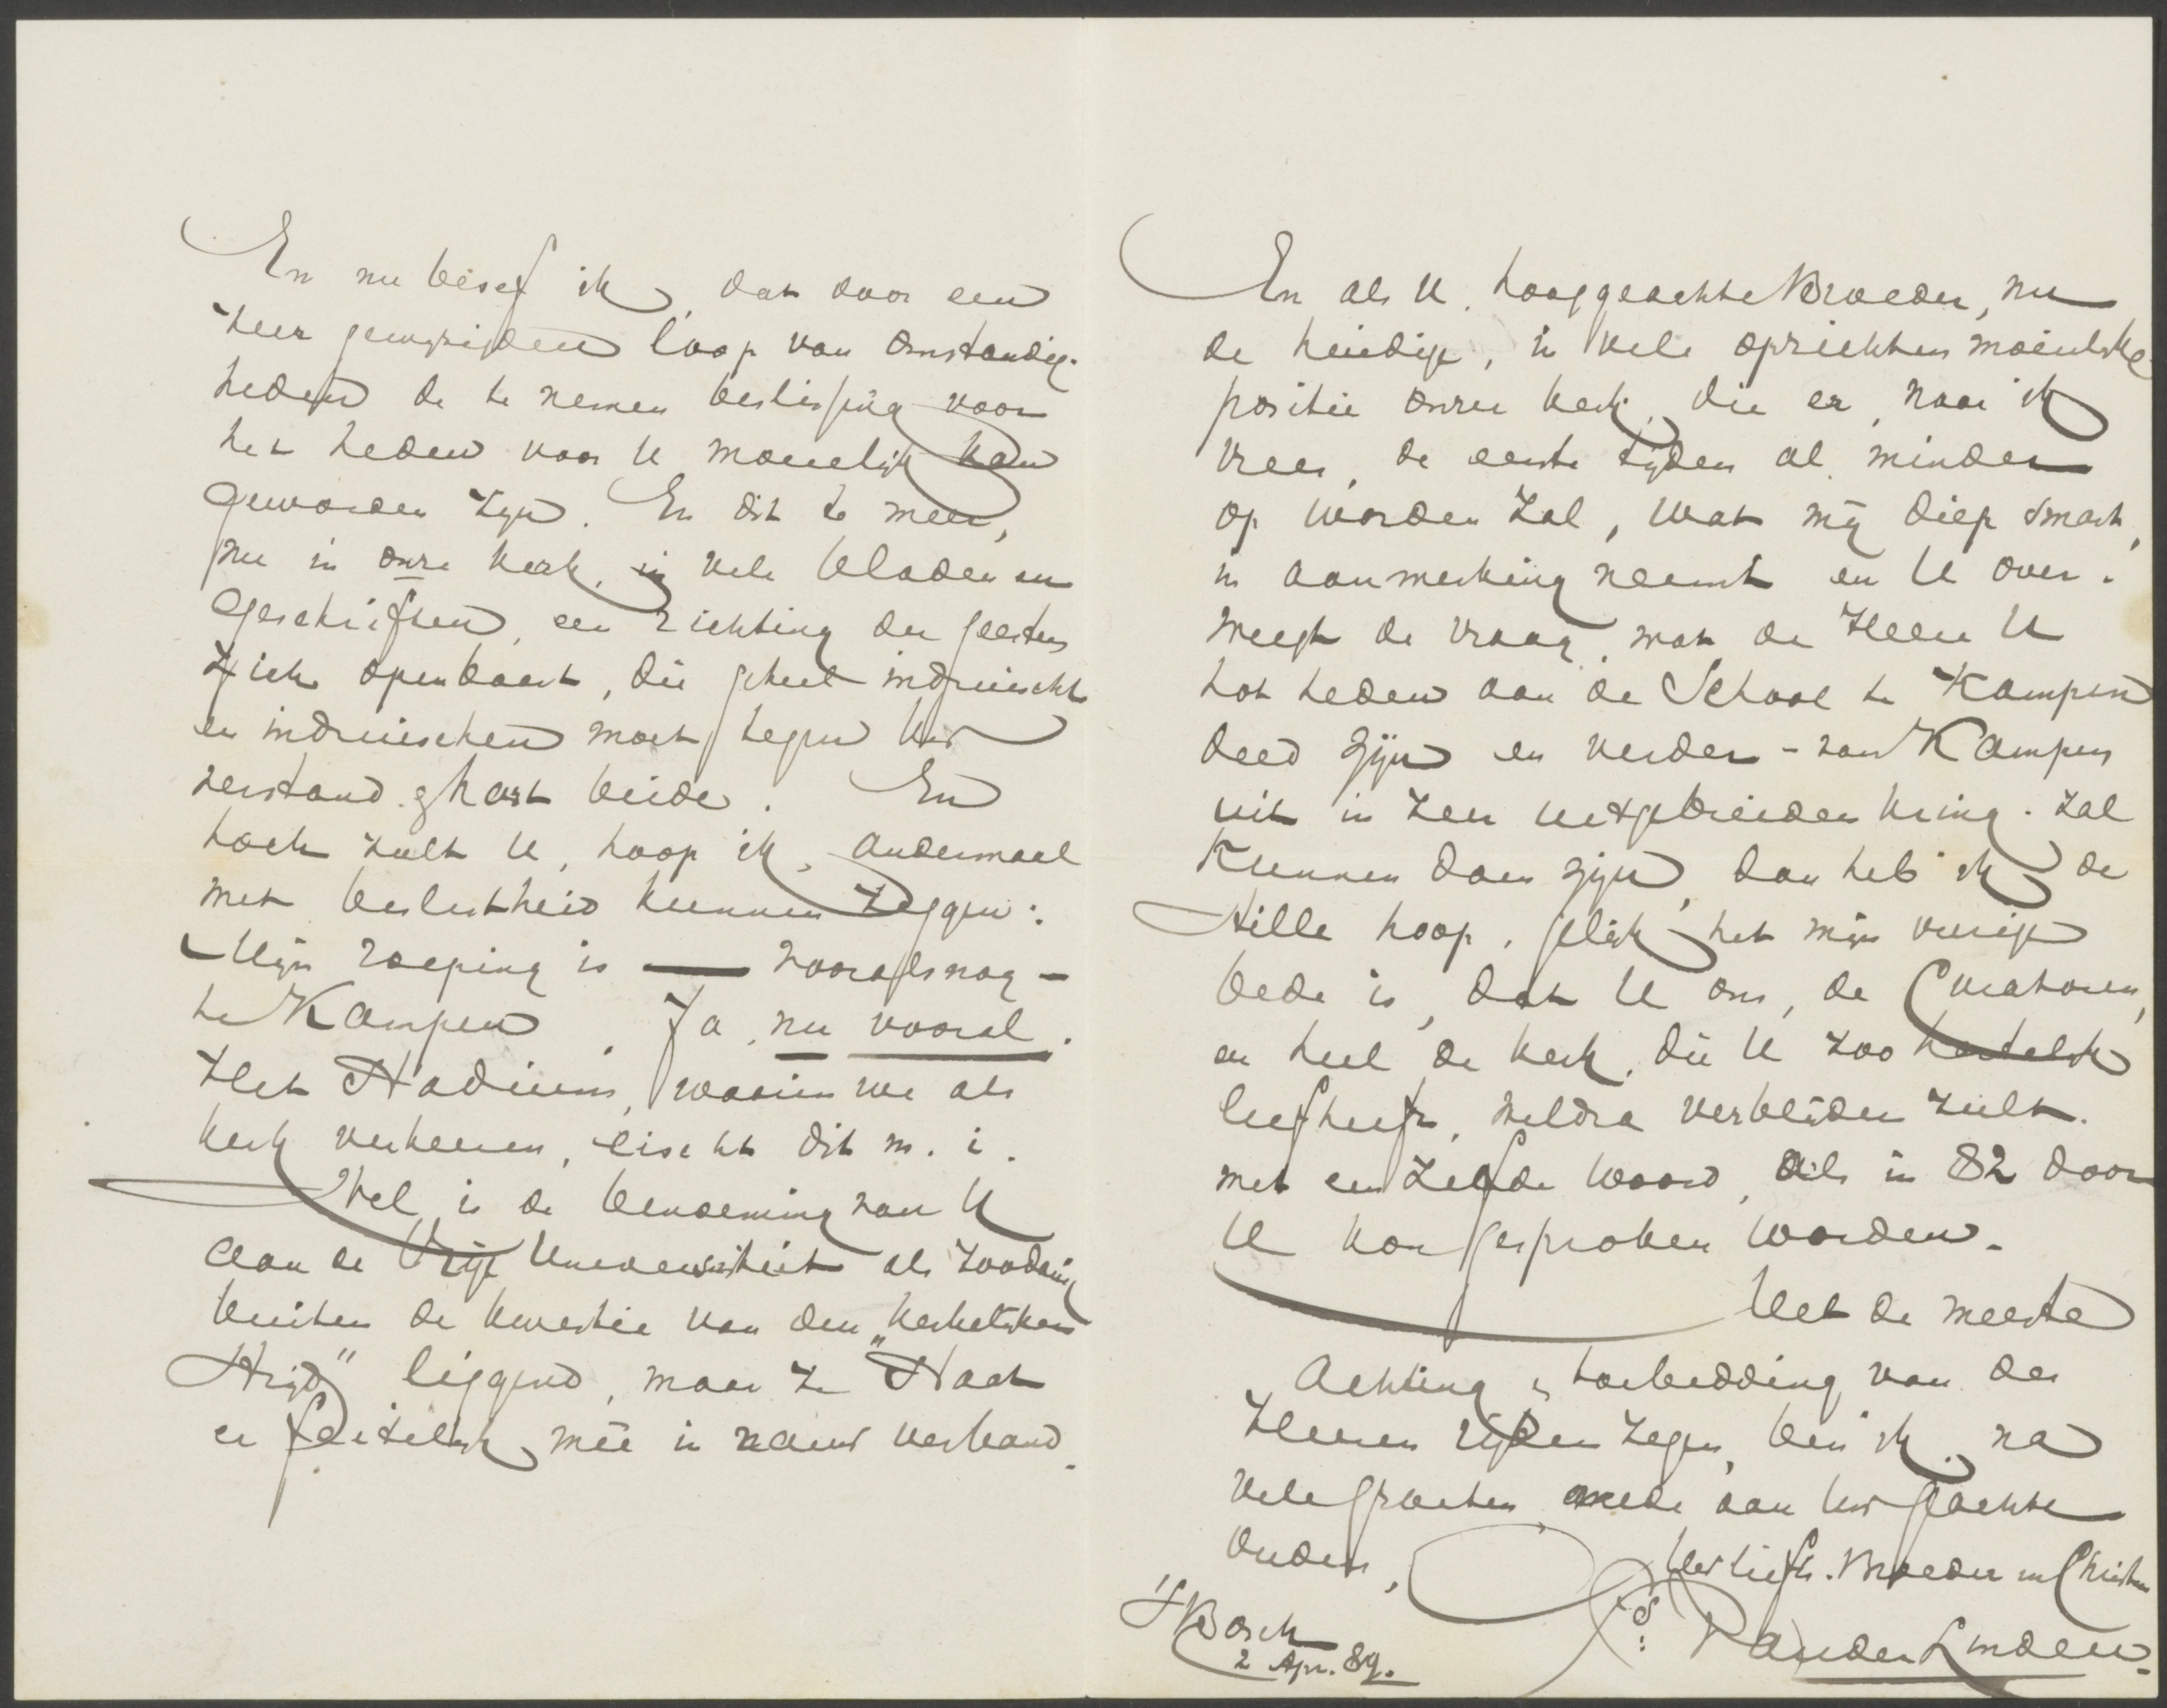 En nu besef ik, dat door een
zeer gewijzigden loop van omstandig-
heden de te nemen beslissing voor
het heden voor U moeielijk kan
geworden zijn. En dit te meer,
nu in onze kerk, in vele bladen en
geschriften, een richting der geesten
zich openbaart, die geheel indruischt
en indruischen moet tegen Uw
verstand & hart beide. En
toch zult U, hoop ik, andermaal
met beslistheid kunnen zeggen:
Mijn roeping is — vooralsnog —
te Kampen. Ja, nu vooral.
Het Stadium, waarin we als
kerk verkeeren, eischt dit m. i.
Wel is de benoeming van U
aan de Vrije Universiteit als zoodanig
buiten de kwestie van den „kerkelijken
Strijd" liggend, maar ze staat
er feitelijk meê in nauw verband.
En als U, hooggeachte Broeder, nu
de huidige, in vele opzichten moeielijke
positie onzer kerk, die er, naar ik
vrees, de eerste tijden al minder
op worden zal, wat mij diep smart,
in aanmerking neemt en U over-
weegt de vraag, wat de Heere U
tot heden aan de School te Kampen
deed zijn en verder - van Kampen
uit in zeer uitgebreiden kring - zal
kunnen doen zijn, dan heb ik de
stille hoop, gelijk het mijn vurige
bede is, dat U ons, de Curatoren,
en heel de kerk, die U zoo hartelijk
liefheeft, weldra verblijden zult.
met eenzelfde woord, als in 82 door
U kon gesproken worden.
Met de meeste
Achting & toebidding van des
Heeren rijken zegen, ben ik, na
vele groeten mede aan Uw geachte
Ouders,
Uw liefh. Broeder in Christus
Ds: P van der Linden.
'sBosch
2 Apr. 89.